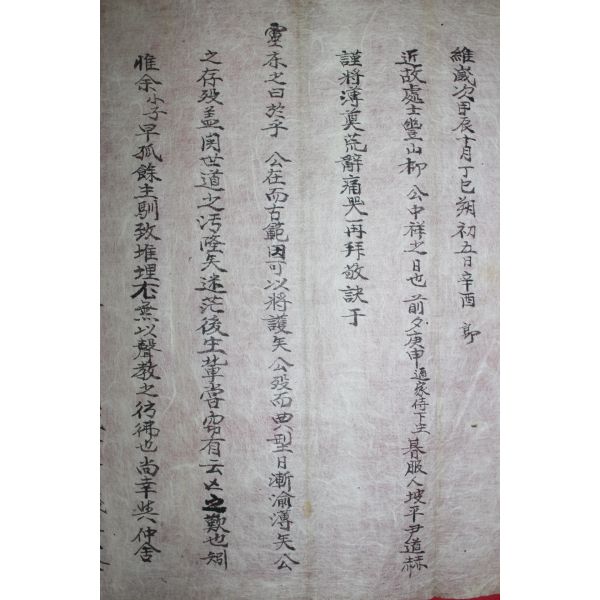 維歲次甲辰十月丁巳朔初五日辛酉 郎
近故處士豊山柳 公中祥之日也 前夕庚申通家侍下生 朞服人坡平尹道赫
謹將薄奠荒辭痛哭再拜敬訣于
靈床之曰於乎 公在而古範因可以將護矣公歿而典型日漸渝薄矣公
之存歿盖関世道之汚隆矣迷茫後生輩當 有云亡之歎也矧
惟余小子早孤餘生馴致堆埋 無以聲教之彷彿也尚幸與仲舍